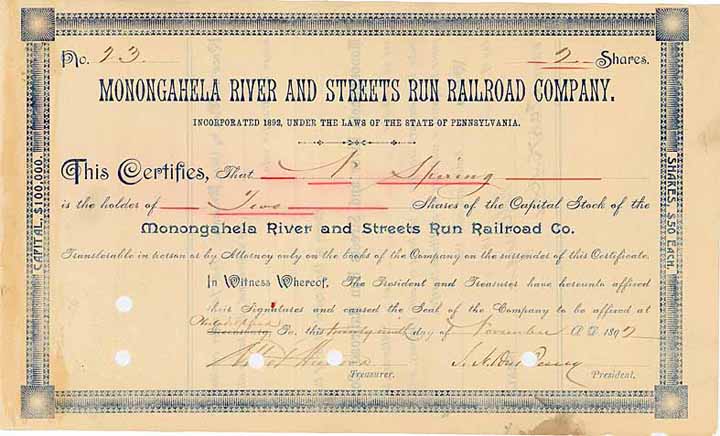 No. 23. 2 Shares.
MONONGAHELA RIVER AND STREETS RUN RAILROAD COMPANY.
INCORPORATED 1892, UNDER THE LAWS OF THE STATE OF PENNSYLVANIA.
This Certifies, That N. Spering
is the holder of Two Shares of the Capital Stock of the
Monongahela River and Streets Run Railroad Co.
Transferable in person or by Attorney only on the books of the Company on the surrender of this Certificate.
In Witness Whereof, The President and Treasurer have hereunto affixed
their Signatures and caused the Seal of the Company to be affixed at
Philadelphia
Pa. this twenty ninth day of November A.D. 189
Treasurer. President.
CAPITAL, $100,000.
SHARES, $50 EACH.